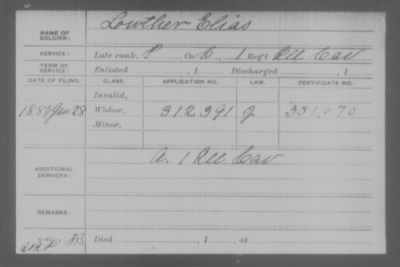 NAME OF SOLDIER: Lowther Elias
SERVICE: Late rank, P Co. E, 1 Reg't Ill Cav
TERM OF SERVICE: Enlisted , 1 Discharged , 1
DATE OF FILING. CLASS. APPLICATION NO. LAW. CERTIFICATE NO.
Invalid,
Jan 28 Widow, 312391 J 351,070
Minor,
ADDITIONAL SERVICES: A. 1 Ill Cav
REMARKS:
Died , 1 , at